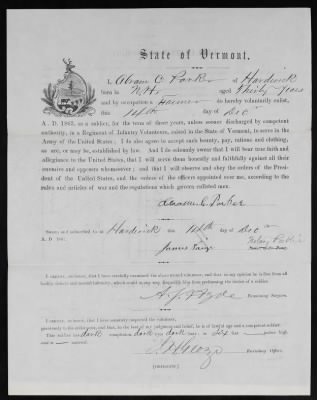 State of Vermont.
I, Abram C. Parker of Hardwick
born in N.H. aged Thirty Years
and by occupation a Farmer do hereby voluntarily enlist,
this 14th day of Dec
A. D. 1863, as a soldier, for the term of three years, unless sooner discharged by competent
authority, in a Regiment of Infantry Volunteers, raised in the State of Vermont, to serve in the
Army of the United States; I do also agree to accept such bounty, pay, rations and clothing,
as are, or may be, established by law. And I do solemnly swear that I will bear true faith and
allegiance to the United States, that I will serve them honestly and faithfully against all their
enemies and opposers whomsoever; and that I will observe and obey the orders of the Presi-
dent of the United States, and the orders of the officers appointed over me, according to the
rules and articles of war and the regulations which govern enlisted men.
Abram C. Parker
Sworn and subscribed to at Hardwick this 14th day of Dec
A. D. 186
James Notary Public
I certify, on honor, that I have carefully examined the above named volunteer, and that in my opinion he is free from all
bodily defects and mental infirmity, which would in any way disqualify him from performing the duties of a soldier.
Hyde Examining Surgeon.
I certify, on honor, that I have minutely inspected the volunteer,
previously to his enlistment, and that, to the best of my judgment and belief, he is of lawful age and a competent soldier.
This soldier has dark complexion dark eyes dark hair; is Six feet — inches high
and is — married.
Recruiting Officer.
(DUPLICATE)